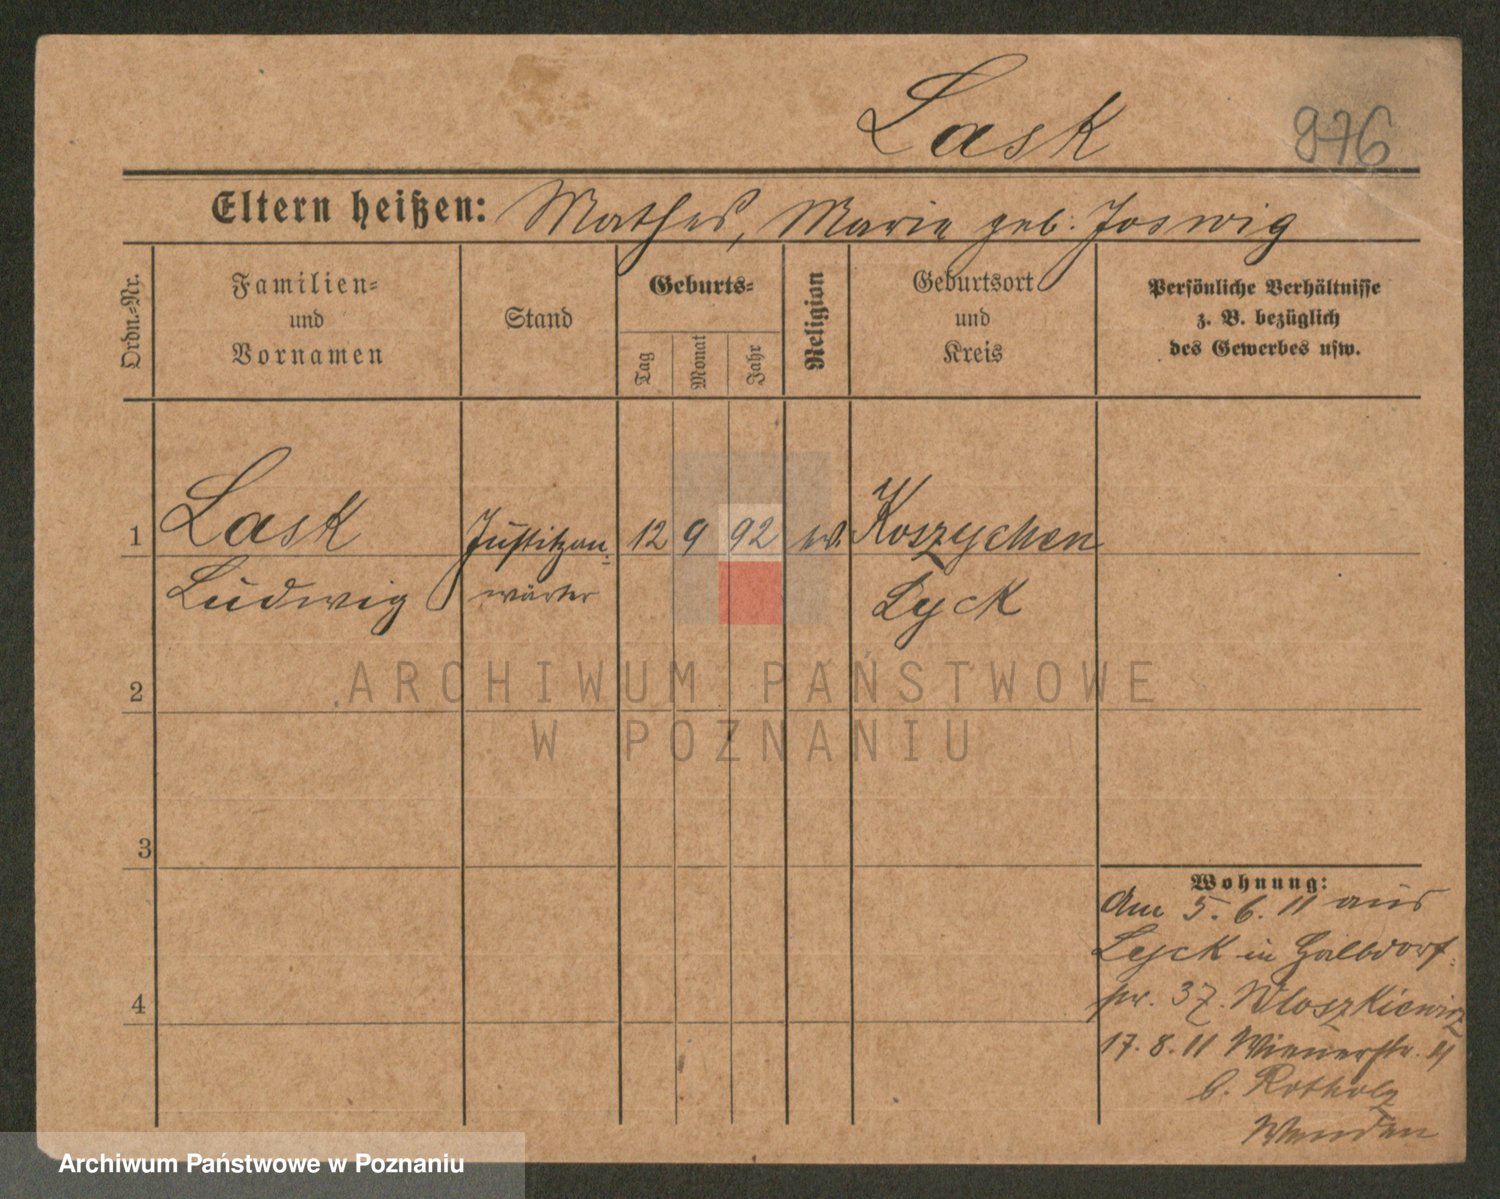 Lask
976
Eltern heißen: Mathes, Marie geb. Joswig
Ordn.-Nr.
Familien-
und
Vornamen
Stand
Geburts-
Tag
Monat
Jahr
Religion
Geburtsort
und
Kreis
Persönliche Verhältnisse
z. B. bezüglich
des Gewerbes usw.
1
Lask
Justizan-
12
9
92
ev.
Koszychen
Ludwig
wärter
Lyck
2
ARCHIWUM PAŃSTWOWE
W POZNANIU
3
Wohnung:
Am 5.6.11 aus
Lyck in Halbdorf-
str. 37. Wloszkiewicz
4
17.8.11 Wienerstr.
b. Rotholz
Wenden
Archiwum Państwowe w Poznaniu